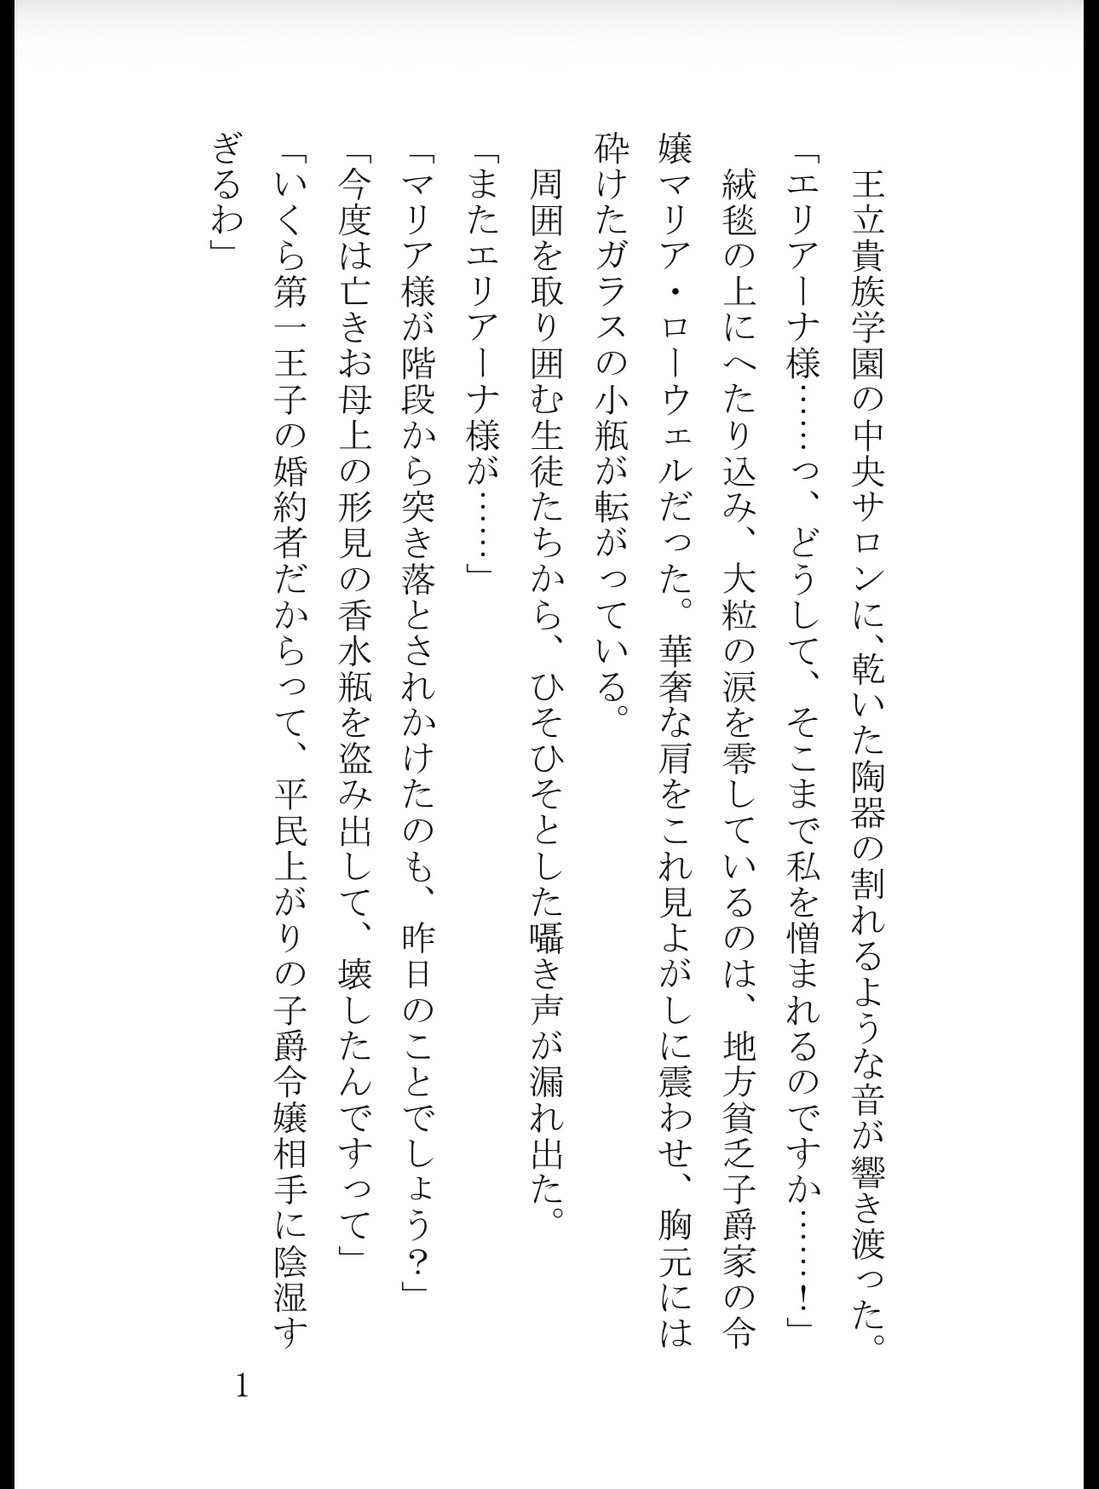 王立貴族学園の中央サロンに、乾いた陶器の割れるような音が響き渡った。
「エリアーナ様……っ、どうして、そこまで私を憎まれるのですか……！」
　絨毯の上にへたり込み、大粒の涙を零しているのは、地方貧乏子爵家の令
嬢マリア・ローウェルだった。華奢な肩をこれ見よがしに震わせ、胸元には
砕けたガラスの小瓶が転がっている。
　周囲を取り囲む生徒たちから、ひそひそとした囁き声が漏れ出た。
「またエリアーナ様が……」
「マリア様が階段から突き落とされかけたのも、昨日のことでしょう？」
「今度は亡きお母上の形見の香水瓶を盗み出して、壊したんですって」
「いくら第一王子の婚約者だからって、平民上がりの子爵令嬢相手に陰湿す
ぎるわ」
1